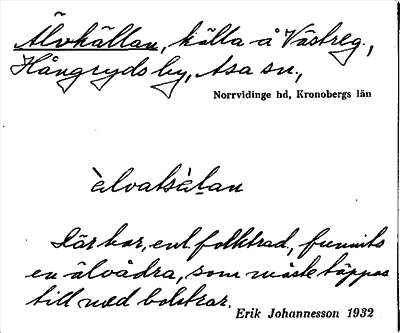 Älvkällan, källa å Västreg.,
Hångryds by, Asa sn.,
Norrvidinge hd, Kronobergs län
Där har, enl. folktrad., funnits
en älvådra, som måste täppas
till med bolstrar.
Erik Johannesson 1932